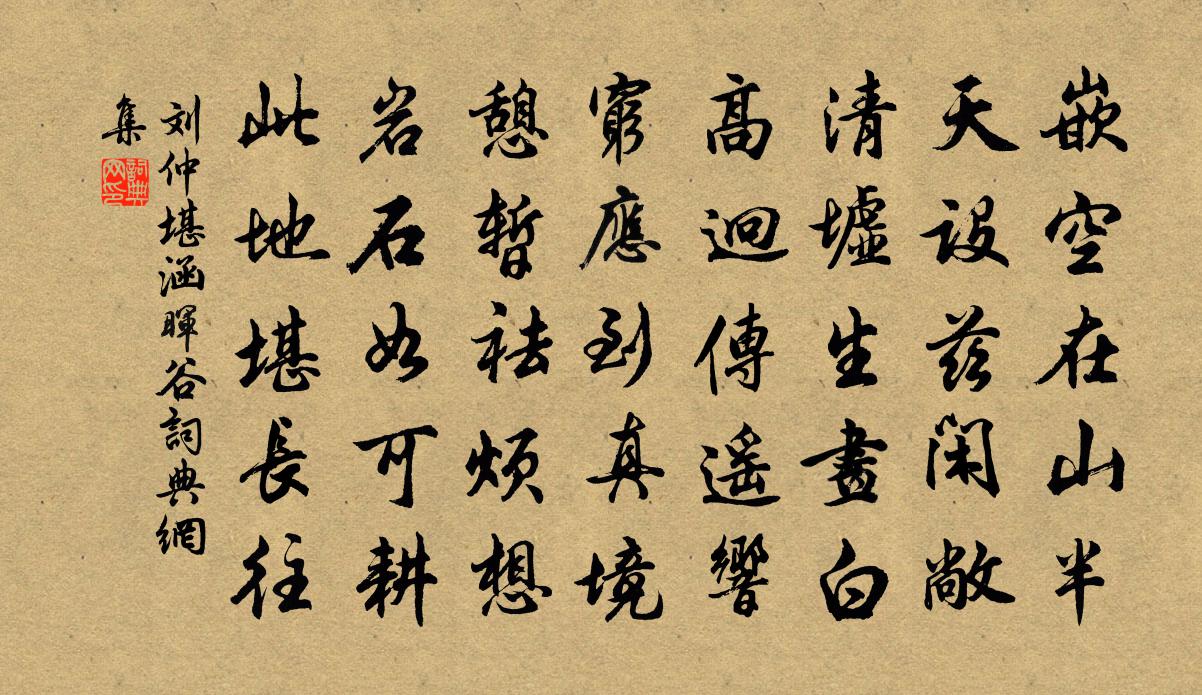 嵌空在山半
天設茲閑敞
清墟生晝白
高迥傳遥響
窮應到真境
憩暫袪煩想
岩石如可耕
此地堪長往
刘仲堪涵暉谷詞典網
集
詞典
网印